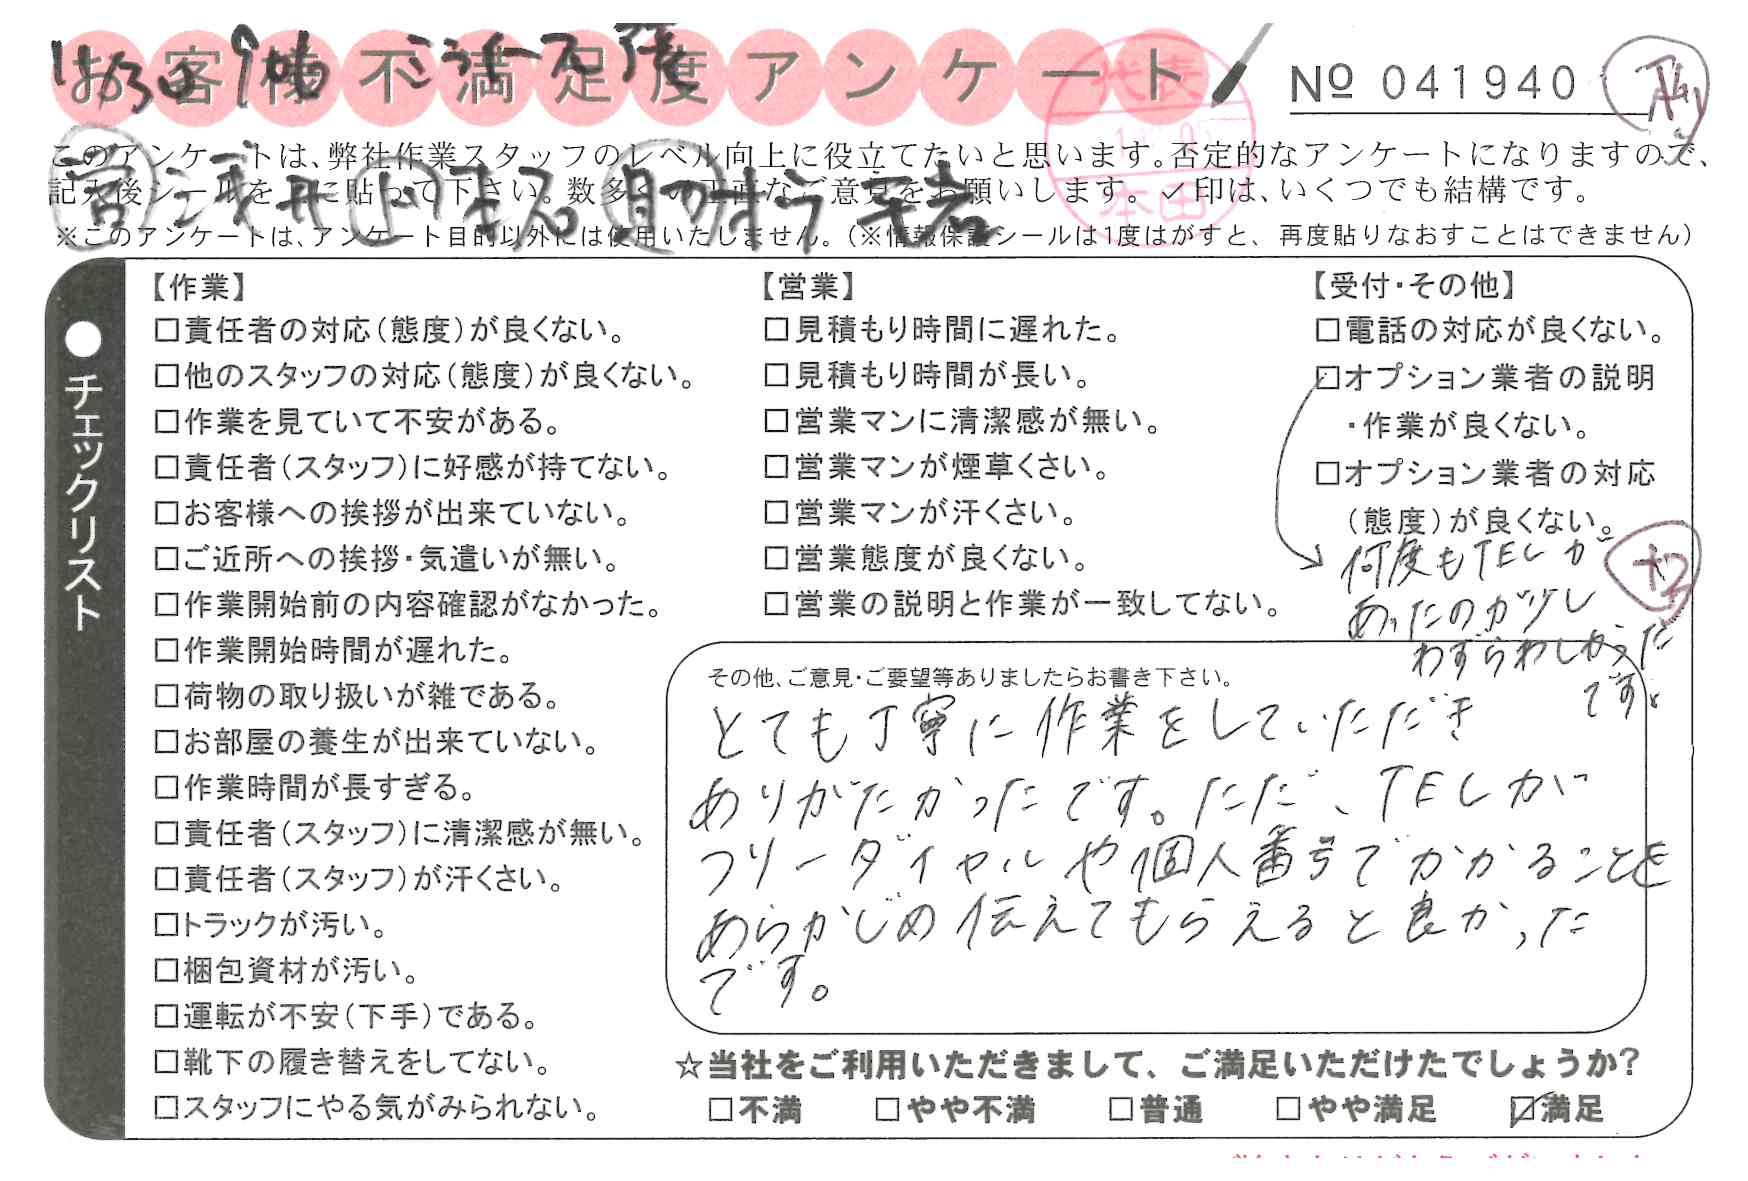 お客様不満足度アンケート
№ 041940
代表
本田
このアンケートは、弊社作業スタッフのレベル向上に役立てたいと思います。否定的なアンケートになりますので、
記入後シールを上に貼って下さい。数多くの正直なご意見をお願いします。✓印は、いくつでも結構です。
※このアンケートは、アンケート目的以外には使用いたしません。（※情報保護シールは1度はがすと、再度貼りなおすことはできません）
●チェックリスト
【作業】
□責任者の対応（態度）が良くない。
□他のスタッフの対応（態度）が良くない。
□作業を見ていて不安がある。
□責任者（スタッフ）に好感が持てない。
□お客様への挨拶が出来ていない。
□ご近所への挨拶・気遣いが無い。
□作業開始前の内容確認がなかった。
□作業開始時間が遅れた。
□荷物の取り扱いが雑である。
□お部屋の養生が出来ていない。
□作業時間が長すぎる。
□責任者（スタッフ）に清潔感が無い。
□責任者（スタッフ）が汗くさい。
□トラックが汚い。
□梱包資材が汚い。
□運転が不安（下手）である。
□靴下の履き替えをしてない。
□スタッフにやる気がみられない。
【営業】
□見積もり時間に遅れた。
□見積もり時間が長い。
□営業マンに清潔感が無い。
□営業マンが煙草くさい。
□営業マンが汗くさい。
□営業態度が良くない。
□営業の説明と作業が一致してない。
【受付・その他】
□電話の対応が良くない。
☑オプション業者の説明
・作業が良くない。
□オプション業者の対応
（態度）が良くない。
何度もTELが
あったのが少し
わずらわしかった
です。
その他、ご意見・ご要望等ありましたらお書き下さい。
とても丁寧に作業をしていただき
ありがたかったです。ただ、TELが
フリーダイヤルや個人番号でかかることを
あらかじめ伝えてもらえると良かった
です。
☆当社をご利用いただきまして、ご満足いただけたでしょうか？
□不満 □やや不満 □普通 □やや満足 ☑満足